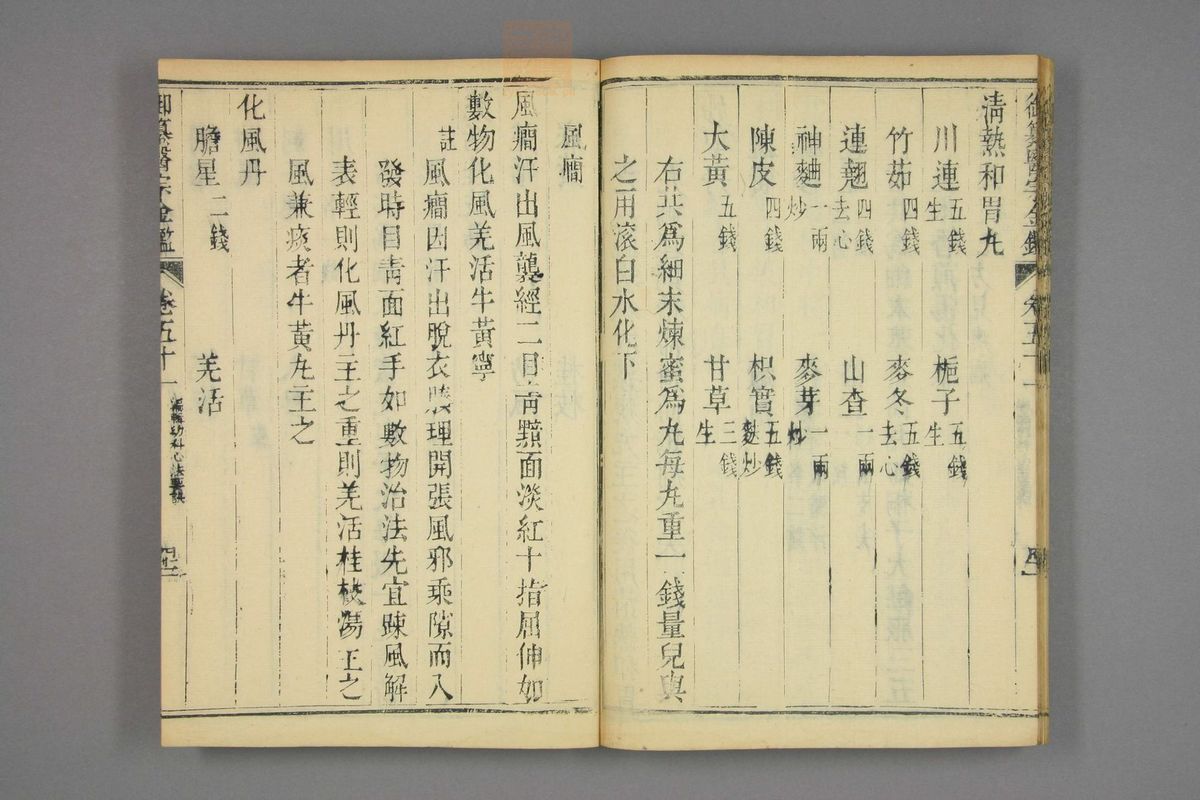 清熱和胃丸
川連五錢生 梔子五錢生
竹茹四錢 麥冬五錢去心
連翹四錢去心 山查一兩
神麯一兩炒 麥芽一兩炒
陳皮四錢 枳實五錢麩炒
大黃五錢 甘草三錢生
右共爲細末煉蜜爲丸每丸重一錢量兒與
之用滾白水化下
風癎
風癎汗出風襲經二目靑黯面淡紅十指屈伸如
數物化風羌活牛黃寧
註風癎因汗出脫衣腠理開張風邪乘隙而入
發時目靑面紅手如數物治法先宜踈風解
表輕則化風丹主之重則羌活桂枝湯主之
風兼痰者牛黃丸主之
化風丹
膽星二錢 羌活
御纂醫宗金鑑 卷五十一 編輯幼科心法要訣